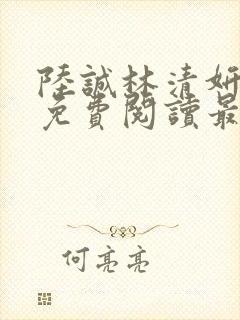 陸誠林清妍
免費閱讀最
何亮亮